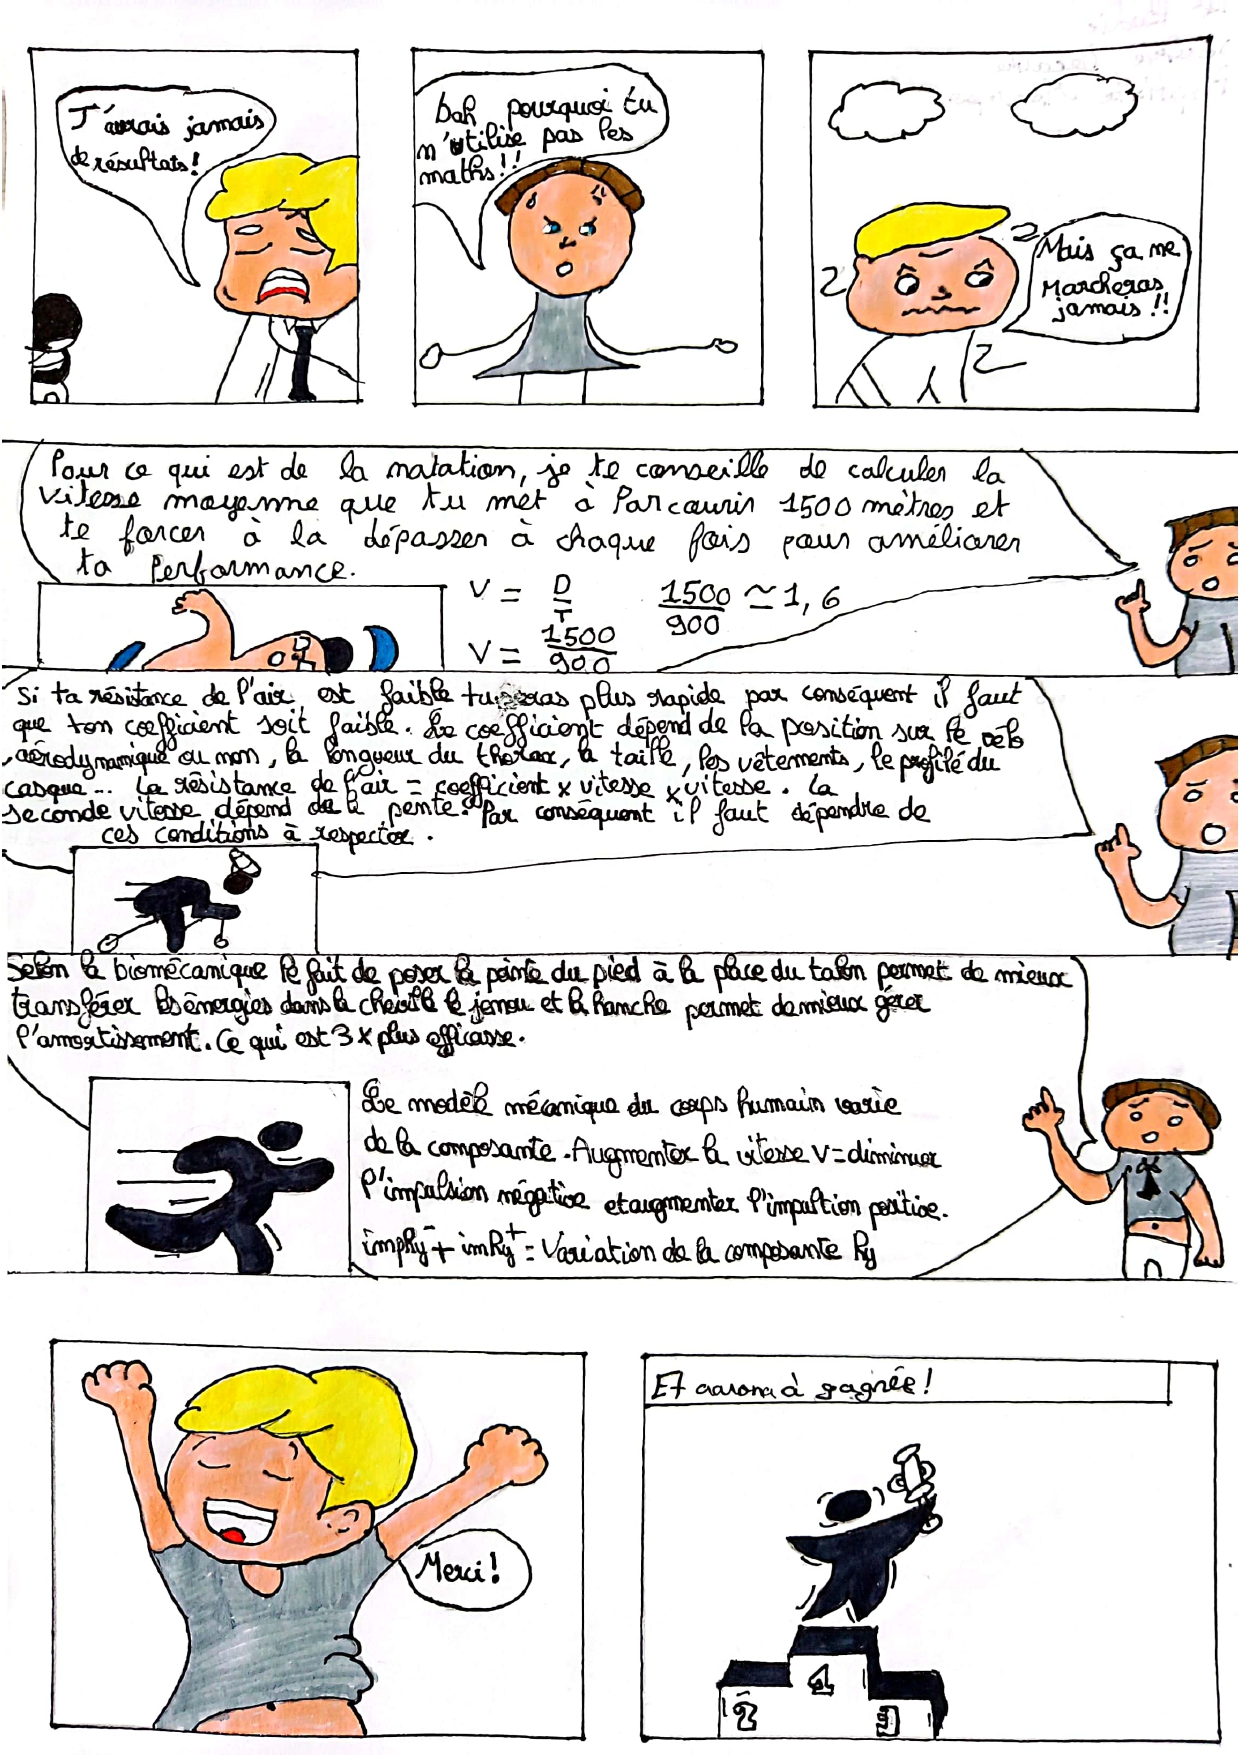 J'aurais jamais
de résultats!
bah pourquoi tu
n'utilise pas les
maths!!
Mais ça me
Marcheras
jamais!!
Pour ce qui est de la natation, je te conseille de calculer la
vitesse moyenne que tu met à Parcourir 1500 mètres et
te forcer à la dépasser à chaque fois pour améliorer
ta Performance.
V = D/T
1500/900 ≃ 1,6
V = 1500/900
Si ta résistance de l'air est faible tu seras plus rapide par conséquent il faut
que ton coefficient soit faible. Le coefficient dépend de la position sur le vélo
, aérodynamique ou non, la longueur du thorax, la taille, les vêtements, le profilé du
casque... La résistance de l'air = coefficient x vitesse x vitesse. La
seconde vitesse dépend de la pente. Par conséquent il faut dépendre de
ces conditions à respecter.
Selon la biomécanique le fait de poser la pointe du pied à la place du talon permet de mieux
transférer les énergies dans la cheville le genou et la hanche permet de mieux gérer
l'amortissement. Ce qui est 3x plus efficasse.
Le modèle mécanique du corps humain varie
de la composante. Augmenter la vitesse V = diminuer
l'impulsion négative et augmenter l'impultion positive.
impRy⁻ + imRy⁺ = Variation de la composante Ry
Merci!
Et à gagnée!
2 1 3